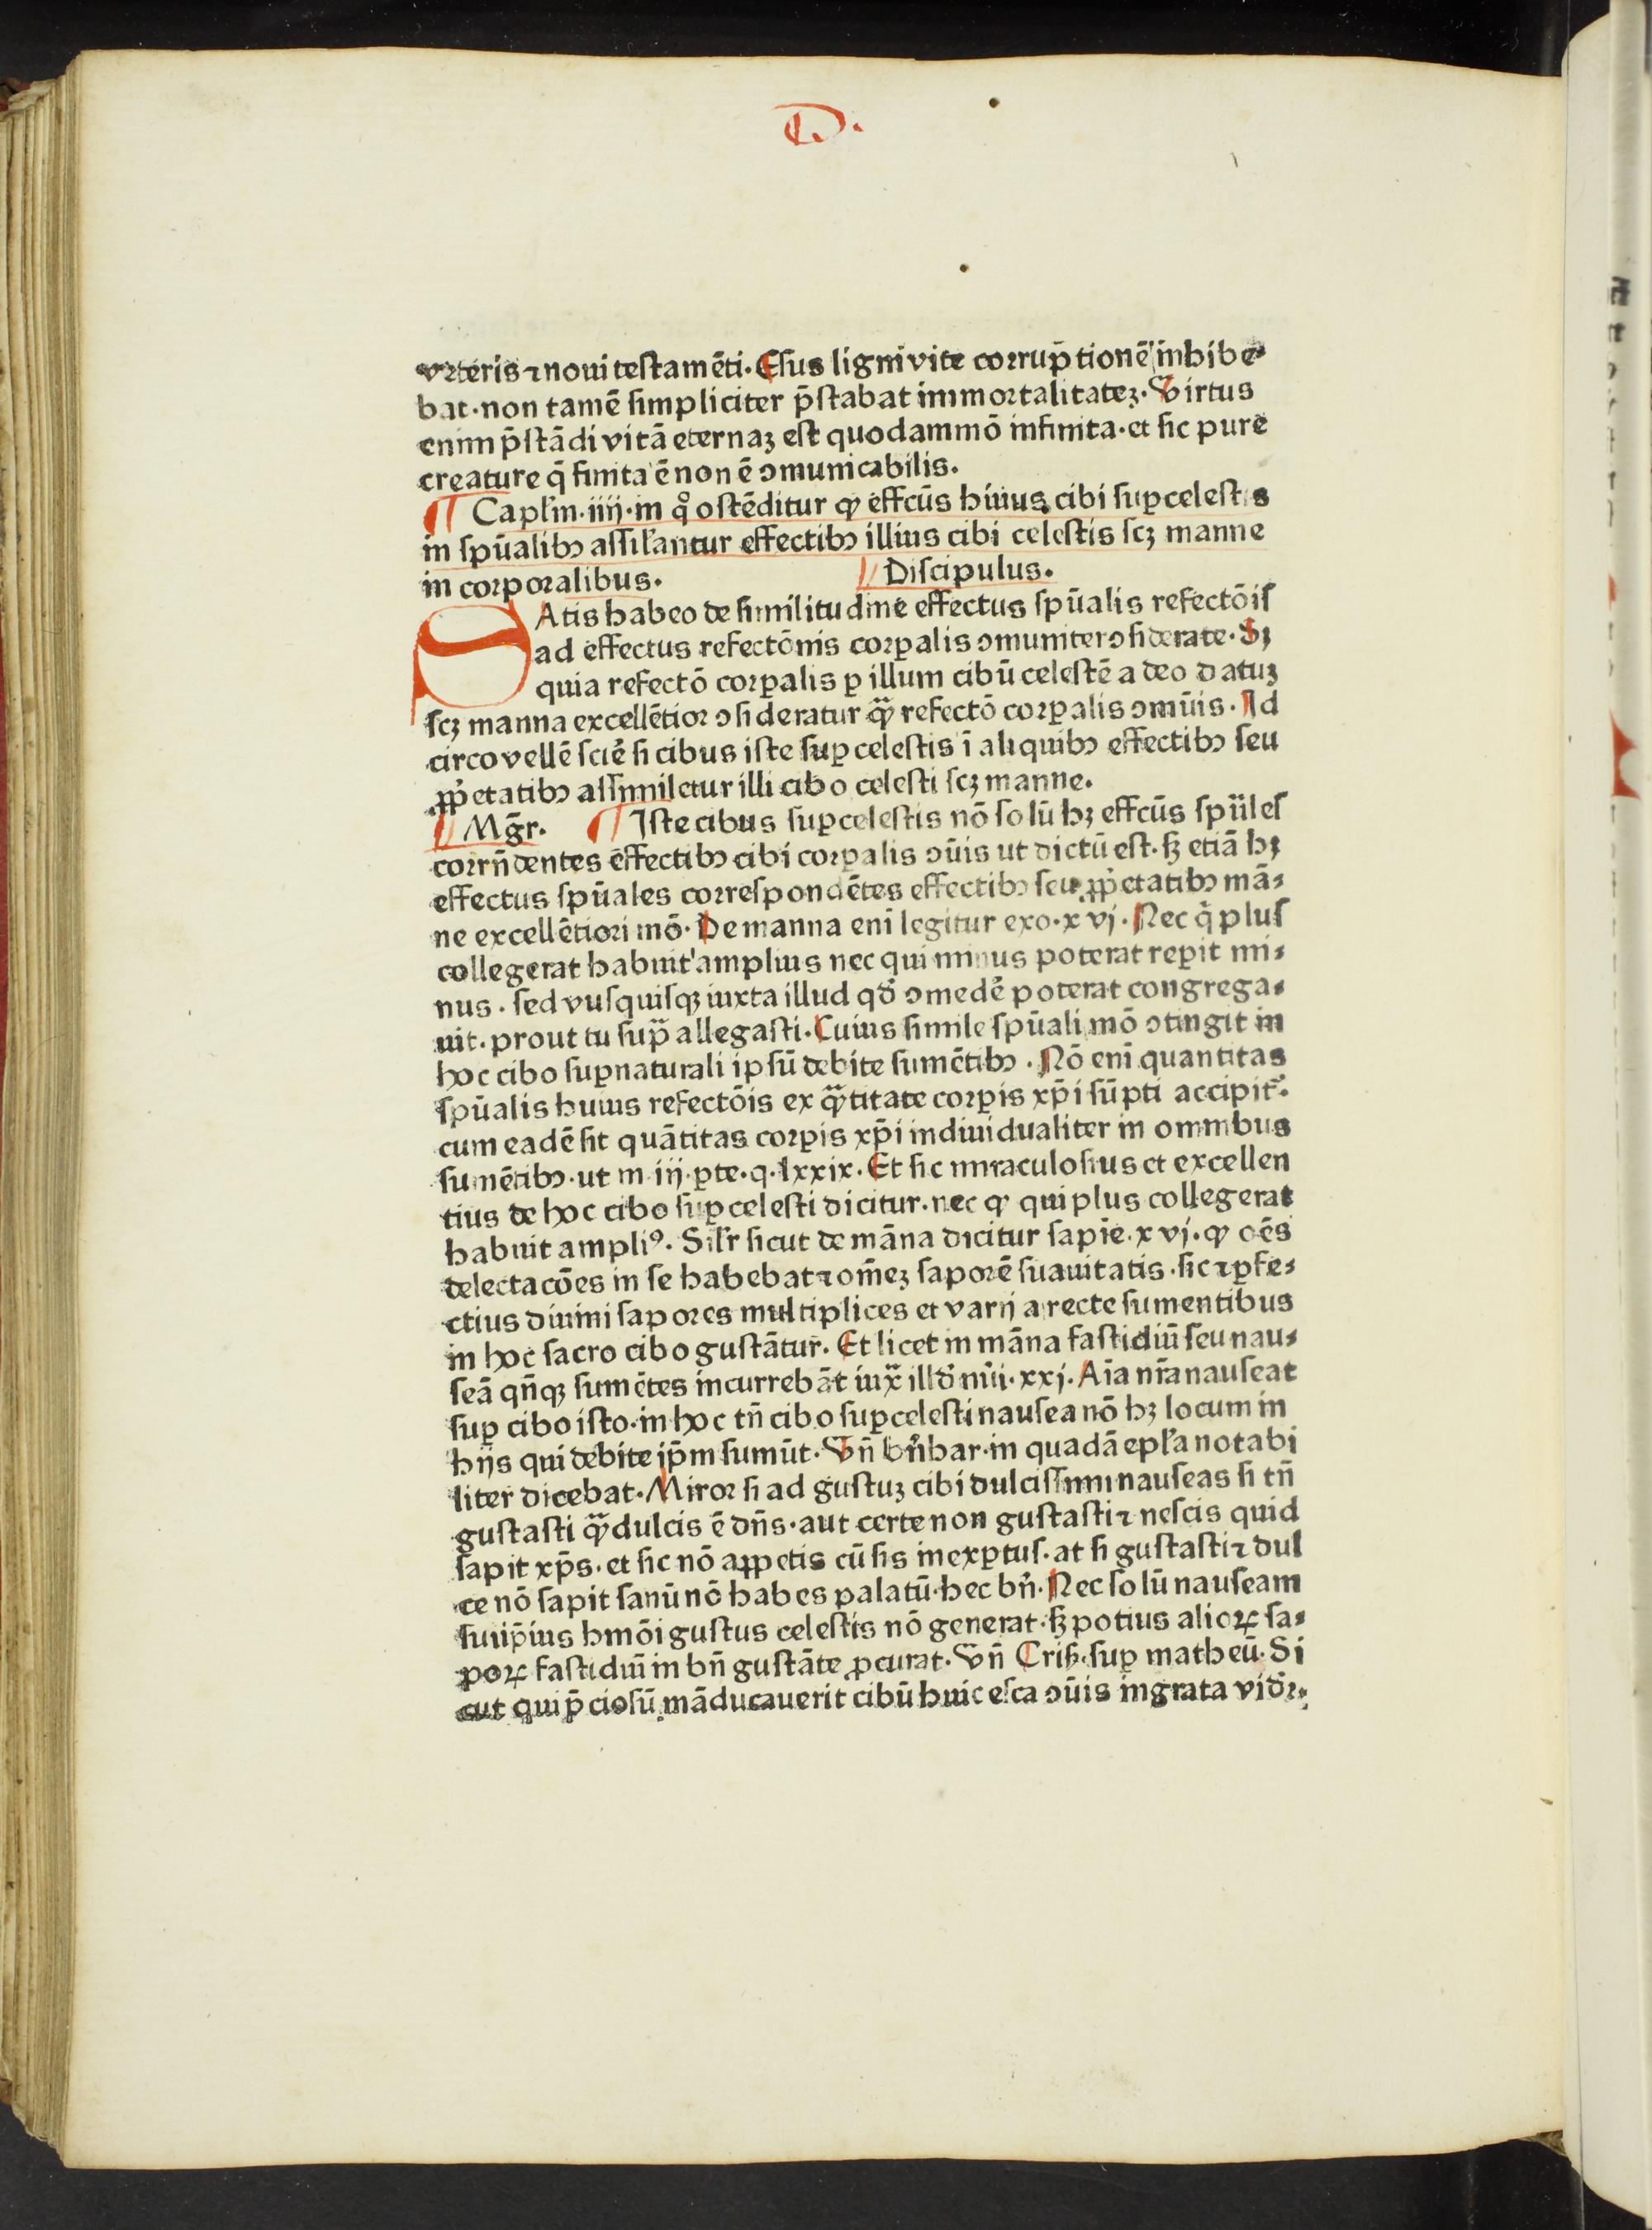 D.
veteris ⁊ noui testamēti. Esus ligni vite corrup̄tionē inhibe⸗
bat. non tamē simpliciter p̄stabat immortalitateꝫ. Virtus
enim p̄stādi vitā eternaꝫ est quodammō infinita. et sic pure
creature q̄ finita ē non ē ꝯmunicabilis.
¶ Capl'm. iiij. in qͦ ostēditur ꝙ effcūs huius cibi suꝑcelestis
in spūalibꝰ assil'antur effectibꝰ illius cibi celestis scꝫ manne
in corporalibus. Discipulus.
SAtis habeo de similitudine effectus spūalis refectōis
ad effectus refectōnis corꝑalis ꝯmuniter ꝯsiderate. Sꝫ
quia refectō corꝑalis ꝑ illum cibū celestē a deo datuꝫ
scꝫ manna excellētior ꝯsideratur qᷓ refectō corꝑalis ꝯmūis. Id
circo vellē sciē si cibus iste suꝑcelestis ī aliquibꝰ effectibꝰ seu
ꝓp̄etatibꝰ assimiletur illi cibo celesti scꝫ manne.
Mḡr. ¶ Iste cibus suꝑcelestis nō solū hꝫ effcūs spūles
corrn̄dentes effectibꝰ cibi corꝑalis ꝯūis ut dictū est. sꝫ etiā hꝫ
effectus spūales correspondētes effectibꝰ seu ꝓp̄etatibꝰ mā⸗
ne excellētiori mō. De manna eni legitur exo. xvj. Nec q̇ plus
collegerat habuit amplius nec qui minus poterat reꝑit mi⸗
nus. sed vnusquisqꝫ iuxta illud qd̄ ꝯmedē poterat congrega⸗
uit. prout tu supᷓ allegasti. Cuius simile spūali mō ꝯtingit in
hoc cibo suꝑnaturali ipsū debite sumētibꝰ. Nō eni quantitas
spūalis huius refectōis ex qᷓtitate corꝑis xp̄i sūpti accipit᷑.
cum eadē sit quātitas corꝑis xp̄i indiuidualiter in omnibus
sumētibꝰ. ut in iij. ꝑte. q. lxxix. Et sic miraculosius et excellen
tius de hoc cibo suꝑcelesti dicitur. nec ꝙ qui plus collegerat
habuit ampliꝰ. Sil'r sicut de māna dicitur sapīe. xvj. ꝙ oēs
delectacōes in se habebat ⁊ om̄eꝫ saporē suauitatis. sic ⁊ ꝑfe⸗
ctius diuini sapores multiplices et varij a recte sumentibus
in hoc sacro cibo gustātur. Et licet in māna fastidiū seu nau⸗
seā qn̄qꝫ sumētes incurrebāt iuxᷓ illd' nūi. xxj. Aīa nr̄a nauseat
suꝑ cibo isto. in hoc tn̄ cibo suꝑcelesti nausea nō hꝫ locum in
hijs qui debite ip̄m sumūt. Vn̄ bn̄bar. in quadā epl'a notabi
liter dicebat. Miror si ad gustuꝫ cibi dulcissimi nauseas si tn̄
gustasti qᷓ dulcis ē dn̄s. aut certe non gustasti ⁊ nescis quid
sapit xp̄s. et sic nō appetis cū sis inexꝑtus. at si gustasti ⁊ dul
ce nō sapit sanū nō habes palatū. hec bn̄. Nec solū nauseam
sui ip̄ius hmōi gustus celestis nō generat. sꝫ potius alioꝝ sa⸗
poꝝ fastidiū in bn̄ gustāte ꝓcurat. Vn̄ Cris. suꝑ matheū. Si
cut qui p̄ciosū māducauerit cibū huic esca ꝯūis ingrata vid'r.